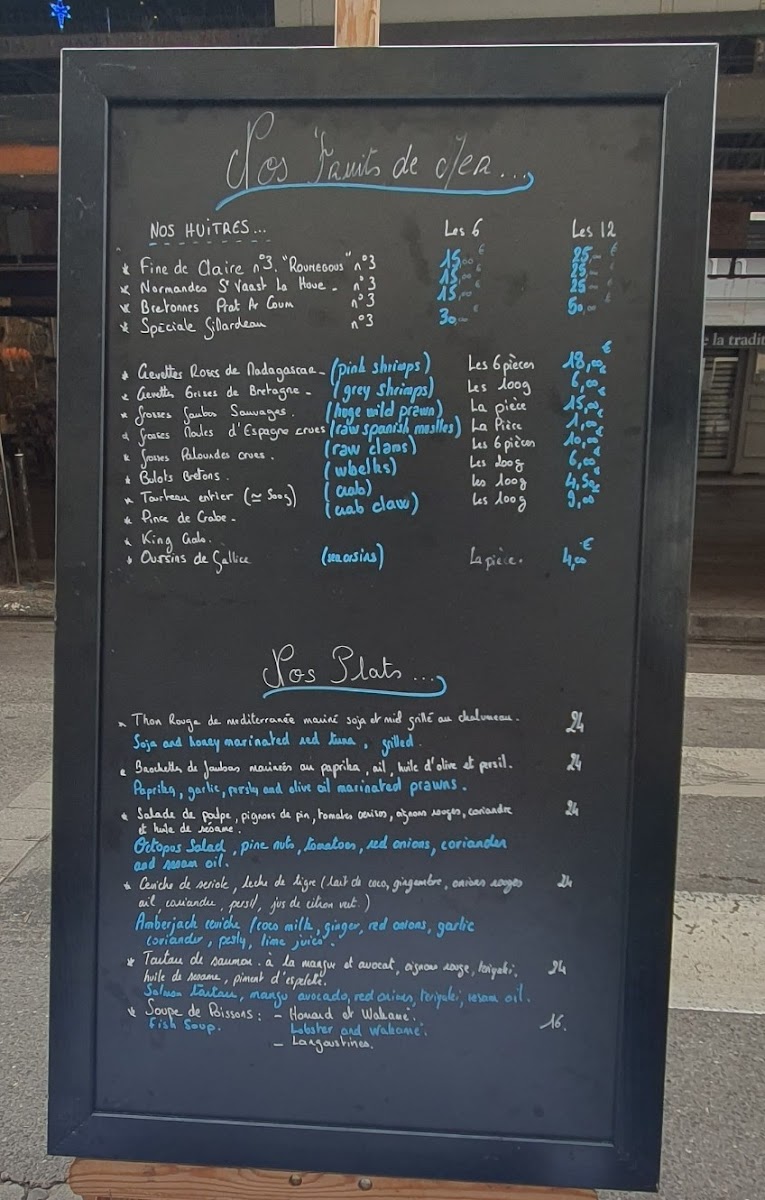 Nos Fruits de Mer...
NOS HUÎTRES... Les 6 Les 12
* Fine de Claire n°3. "ROUMEGOUS" n°3 15,00€ 25,00€
* Normandes St Vaast La Houe - n°3 15,00€ 25,00€
* Bretonnes Prat Ar Coum n°3 15,00€ 25,00€
* Spéciale Gillardeau n°3 30,00€ 50,00€
* Crevettes Roses de Madagascar - (pink shrimps) Les 6 pièces 18,00€
* Crevettes Grises de Bretagne - (grey shrimps) Les 100g 6,00€
* Grosses Gambas Sauvages. (huge wild prawn) La pièce 15,00€
* Grosses Moules d'Espagne crues (raw spanish muslles) La Pièce 1,00€
* Grosses Palourdes crues. (raw clams) Les 6 pièces 10,00€
* Bulots Bretons. (whelks) Les 200g 6,00€
* Tourteau entier (≈ 500g) (crab) les 100g 4,50€
* Pince de Crabe - (crab claw) les 100g 9,00€
* King Crab.
* Oursins de Gallice (sea orsins) La pièce. 4,00€
Nos Plats...
* Thon Rouge de mediterranée mariné soja et miel grillé au chalumeau. 24
Soja and honey marinated red tuna, grilled.
* Brochettes de Gambas marinées au paprika, ail, huile d'olive et persil. 24
Paprika, garlic, parsly and olive oil marinated prawns.
* Salade de poulpe, pignons de pin, tomates cerises, oignons rouges, coriandre 24
et huile de sésame.
Octopus Salad, pine nuts, tomatoes, red onions, coriander
and sesam oil.
* Ceviche de seriole, leche de tigre (lait de coco, gingembre, onions rouges 24
ail, coriandre, persil, jus de citron vert.)
Amberjack ceviche (coco milk, ginger, red onions, garlic
coriander, parsly, lime juice.
* Tartare de saumon à la mangue et avocat, oignons rouge, teriyaki. 24
huile de sesame, piment d'espelette.
Salmon tartare, mangu avocado, red onions, teriyaki, sesam oil.
* Soupe de Poissons: - Homard et Wakamé. 16.
Fish Soup. Lobster and Wakame.
- Langoustines.
e la tradit